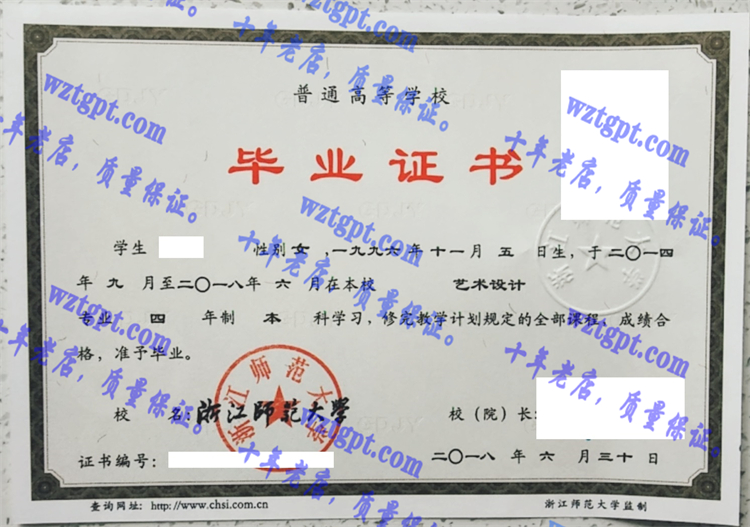 普通高等学校
毕业证书
学生 性别 女 ，一九九六年 十一月 五 日生，于二〇一四
年 九 月至二〇一八年 六 月在本校 艺术设计
专业 四 年制 本 科学习，修完教学计划规定的全部课程，成绩合
格，准予毕业。
校 名：浙江师范大学
校（院）长：
证书编号：
二〇一八 年 六 月 三十 日
查询网址：http://www.chsi.com.cn
浙江师范大学监制
浙江师范大学
浙江师范大学
wztgpt.com
十年老店，质量保证。
wztgpt.com
十年老店，质量保证。
wztgpt.com
十年老店，质量保证。
wztgpt.com
十年老店，质量保证。
wztgpt.com
十年老店，质量保证。
wztgpt.com
十年老店，质量保证。
wztgpt.com
十年老店，质量保证。